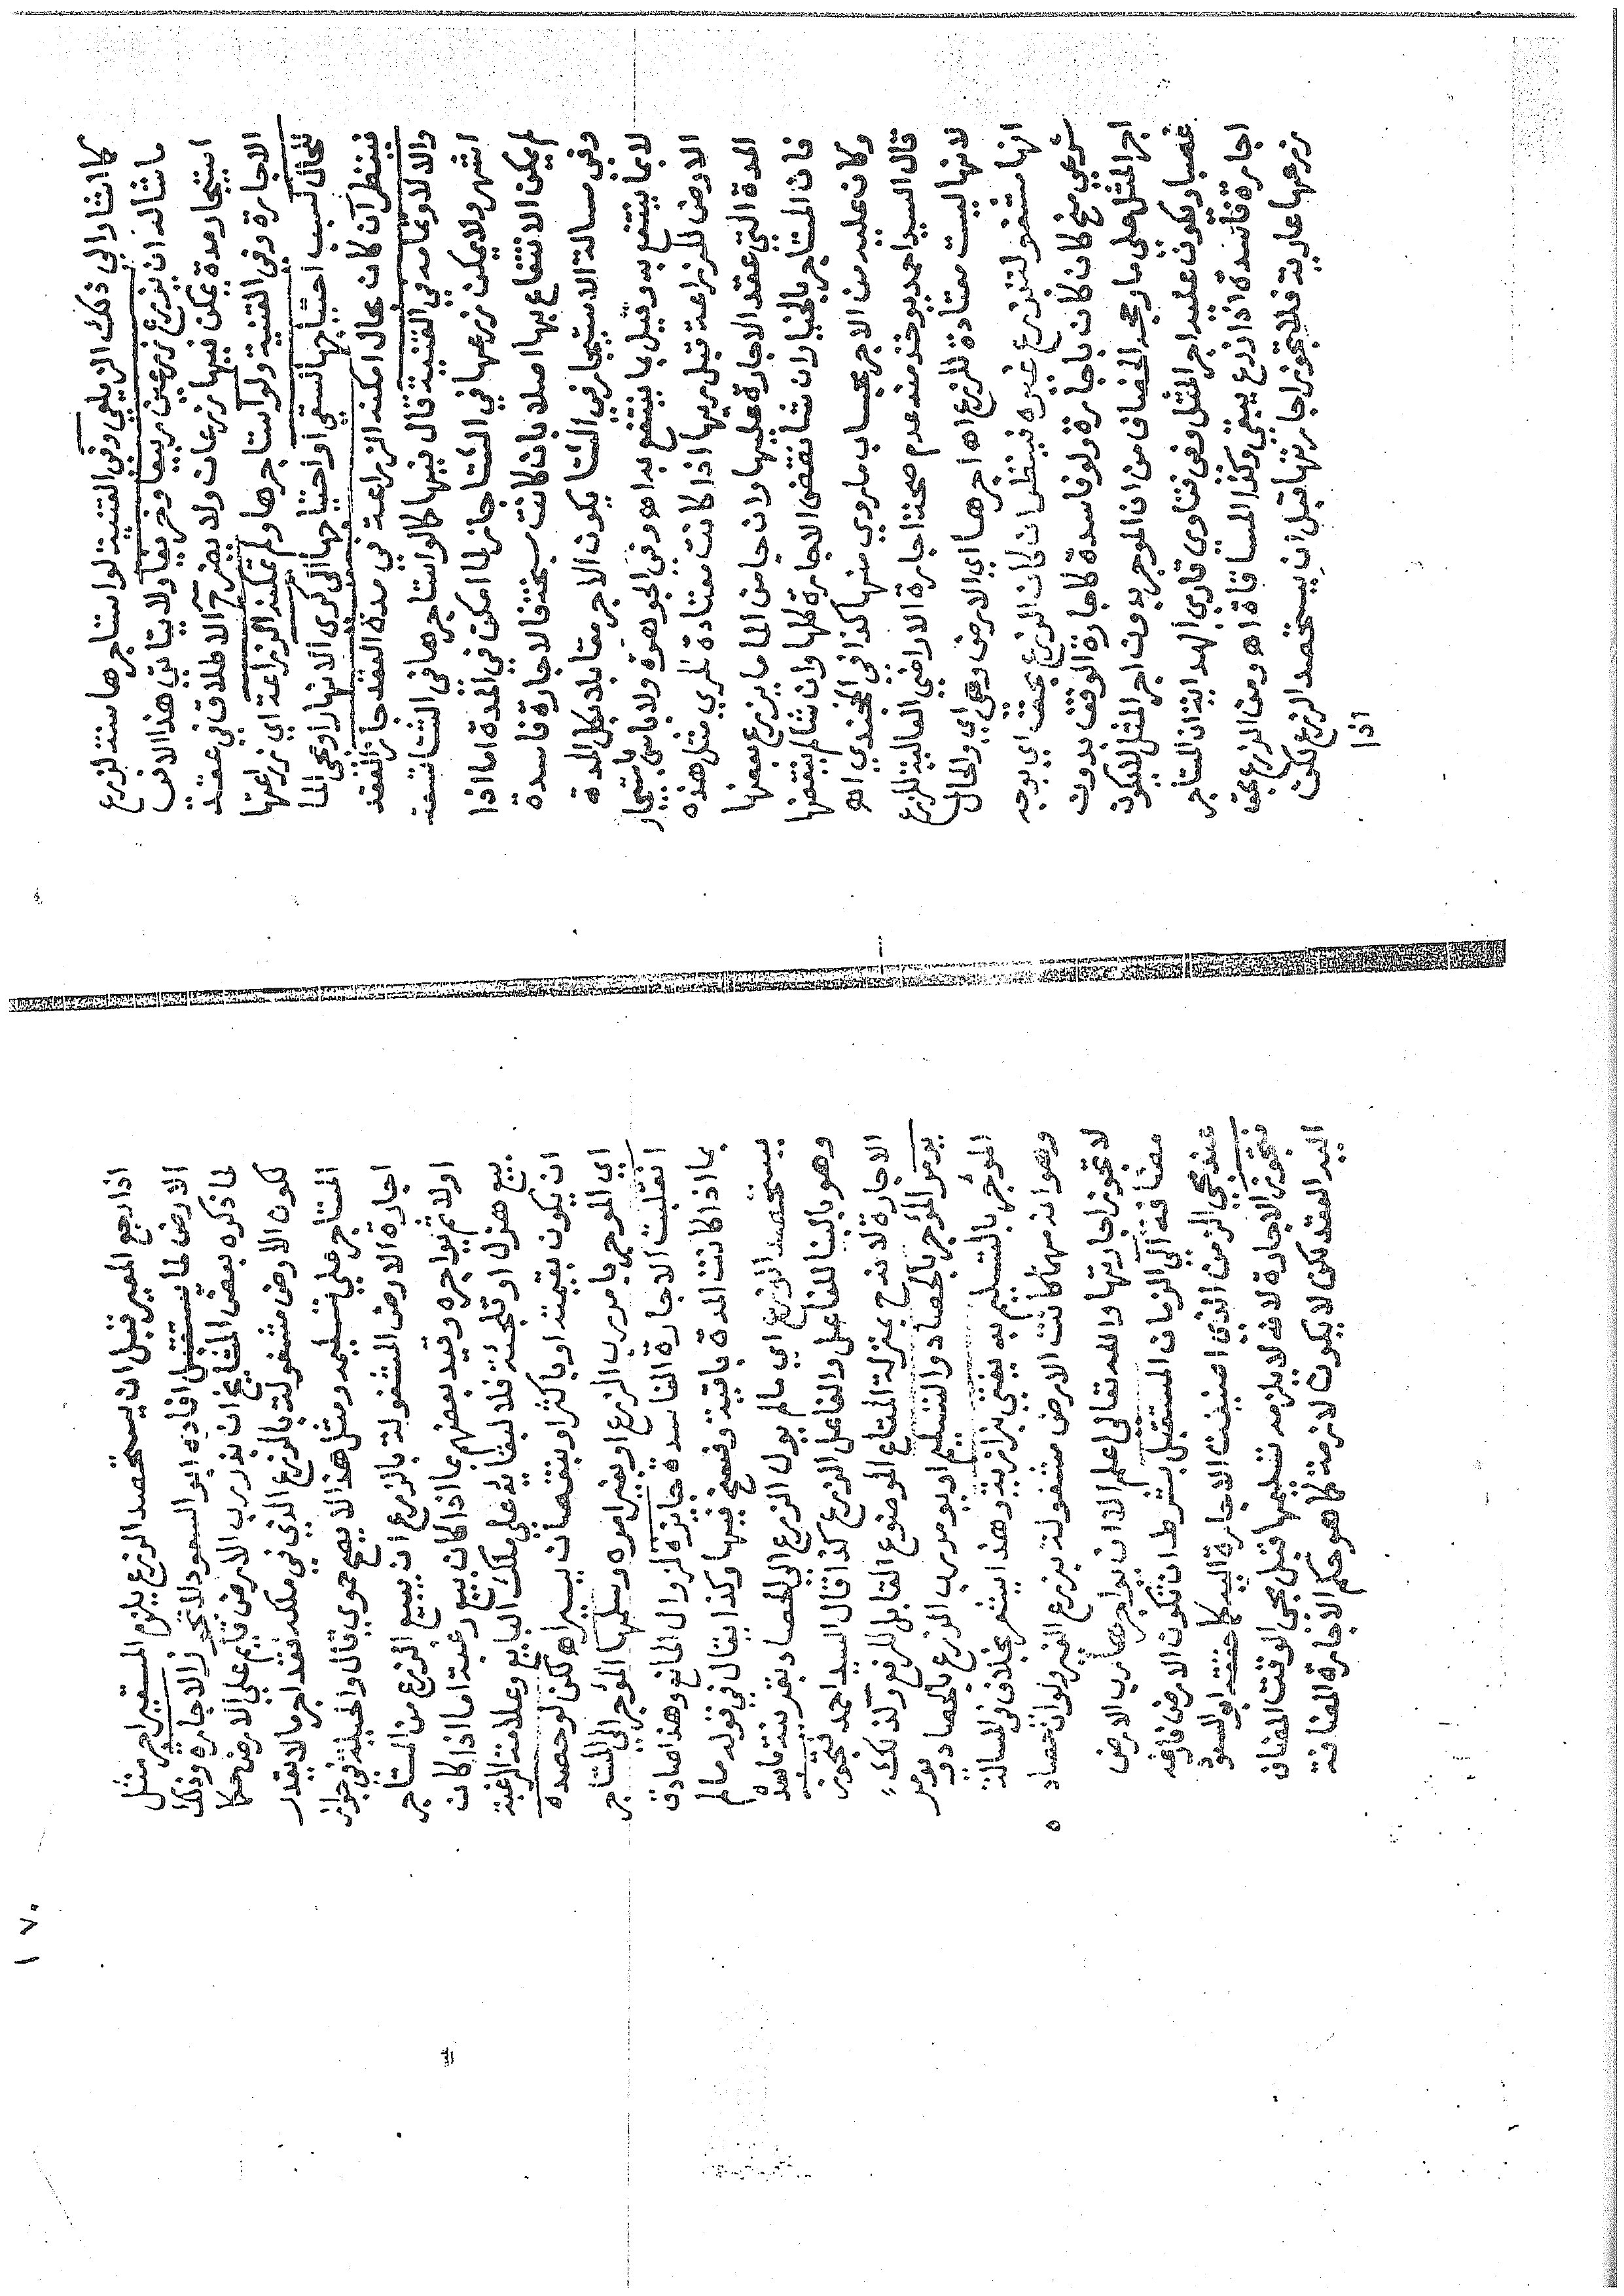 كما اشار الى ذلك الزيلعي وفي القنية لو استاجرها سنة لزرع
ما شاء له ان يزرع زرعين ربيعا وخريفا ولا يتاتى هذا الا في
استيجار مدة يمكن فيها زرعان ولا يضرح الاطلاق في عقد
الاجارة وفي القنية ولو استاجرها ولم تمكنه الزراعة اي زراعتها
للحال لسبب احتياجها لسقي او احتياجها الى كري الانهار او مجى الما
فينظر ان كان بحال امكنه الزراعة في مدة العقد جاز العقد
والا لا وتمامه في القنية قال فيها كما لو استاجرها في الشتا تسعة
اشهر ولا يمكن زرعها في الشتا جاز لما امكن في المدة اما اذا
لم يمكن الانتفاع بها اصلا بان كانت سبخة فالاجارة فاسدة
وفي مسالة الاستيجار في الشتا يكون الاجر مقابلا بكل المدة
لا بما ينتفع به وقيل بما ينتفع به اه وفي الجوهرة ولا باس باستيجار
الارض للزراعة قبل ريها اذا كانت معتادة للري مثل هذه
المدة التي عقد الاجارة عليها وان جا من الما ما يزرع بعضها
فان المستاجر بالخيار ان شا نقض الاجارة كلها وان شا لم ينقضها
وكان عليه من الاجر بحساب ما روي منها كذا في الخجندي اه
قال السيد احمد يوخذ منه عدم صحة اجارة الاراضي العالية للزرع
لانها ليست معتادة للزرع اه اجرها اي الارض وهي اي والحال
انها مشغولة بزرع غيره فينظر ان كان الزرع بحق اي بوجه
شرعي صح كان كان باجارة ولو فاسدة كاجارة الوقف بدون
اجر المثل على ما رجحه الخصاف من ان الموجر بدون اجر المثل لا يكون
غصبا ويكون عليه اجر المثل ففي فتاوى قاري الهداية ان المستاجر
اجارة فاسدة اذا زرع يبقى وكذا المساقاة اه ومن الزرع بحق
زرعها عارية فلا تجوز اجارتها قبل ان يستحصد الزرع لكن
اذا
اذا رجع المعير قبل ان يستحصد الزرع يلزم المستعير اجر مثل
الارض لما يستقبل افاده ابو السعود لا تجوز الاجارة وذلك
لما ذكره بعض المشايخ ان بذر رب الارض قايم على الارض حكما
لكون الارض مشغولة بالزرع الذي في ملكه فقد اجر ما لا يقدر
المستاجر على تسليمه ومثل هذا لا يصح حموي قال والحيلة في جواز
اجارة الارض المشغولة بالزرع ان يبيع الزرع من المستاجر
اولا ثم يواجره وقيد بعضهم بما اذا كان بيع رغبة اما اذا كان
بيع هزل او تلجئة فلا لبقايه على ملك البايع وعلامة الرغبة
ان يكون بقيمته او باكثر او بنقصان يسير اه لكن لو حصده
اي الموجر يا مر رب الزرع او بغير امره وسلمها الموجر الى المستاجر
انقلبت الاجارة الفاسدة جايزة لزوال المانع وهذا صادق
بما اذا كانت المدة باقية وفسخ فيها وكذا يقال في قوله ما لم
يستحصد الزرع اي ما لم يول الزرع الى الحصاد بقرينة ما بعده
وهو بالبنا للفاعل والفاعل الزرع كذا قال السيد احمد فتجوز
الاجارة لانه ح بمنزلة المتاع الموضوع القابل للرفع ولذلك
يومر الموجر بالحصاد والتسليم او يومر رب الزرع بالحصاد ويومر
الموجر بالتسليم به يفتي بزازية وهذا يشعر بخلاف في المسالة
وهو انه مهما كانت الارض مشغولة بزرع الغير لو ان حصاده
لا تجوز اجارتها والله تعالى اعلم الا ان يواجرها رب الارض
مضافة الى الزمان المستقبل بشرط ان تكون الارض فارغة
عند مجي الزمن الذي اضيفت الاجارة اليه كما حققه ابو السعود
فتجوز الاجارة لانه لا يلزمه تسليمها قبل مجى الوقت المضاف
اليه العقد لكن لا يكون لازمة كما هو حكم الاجارة المضافة
١٧٠